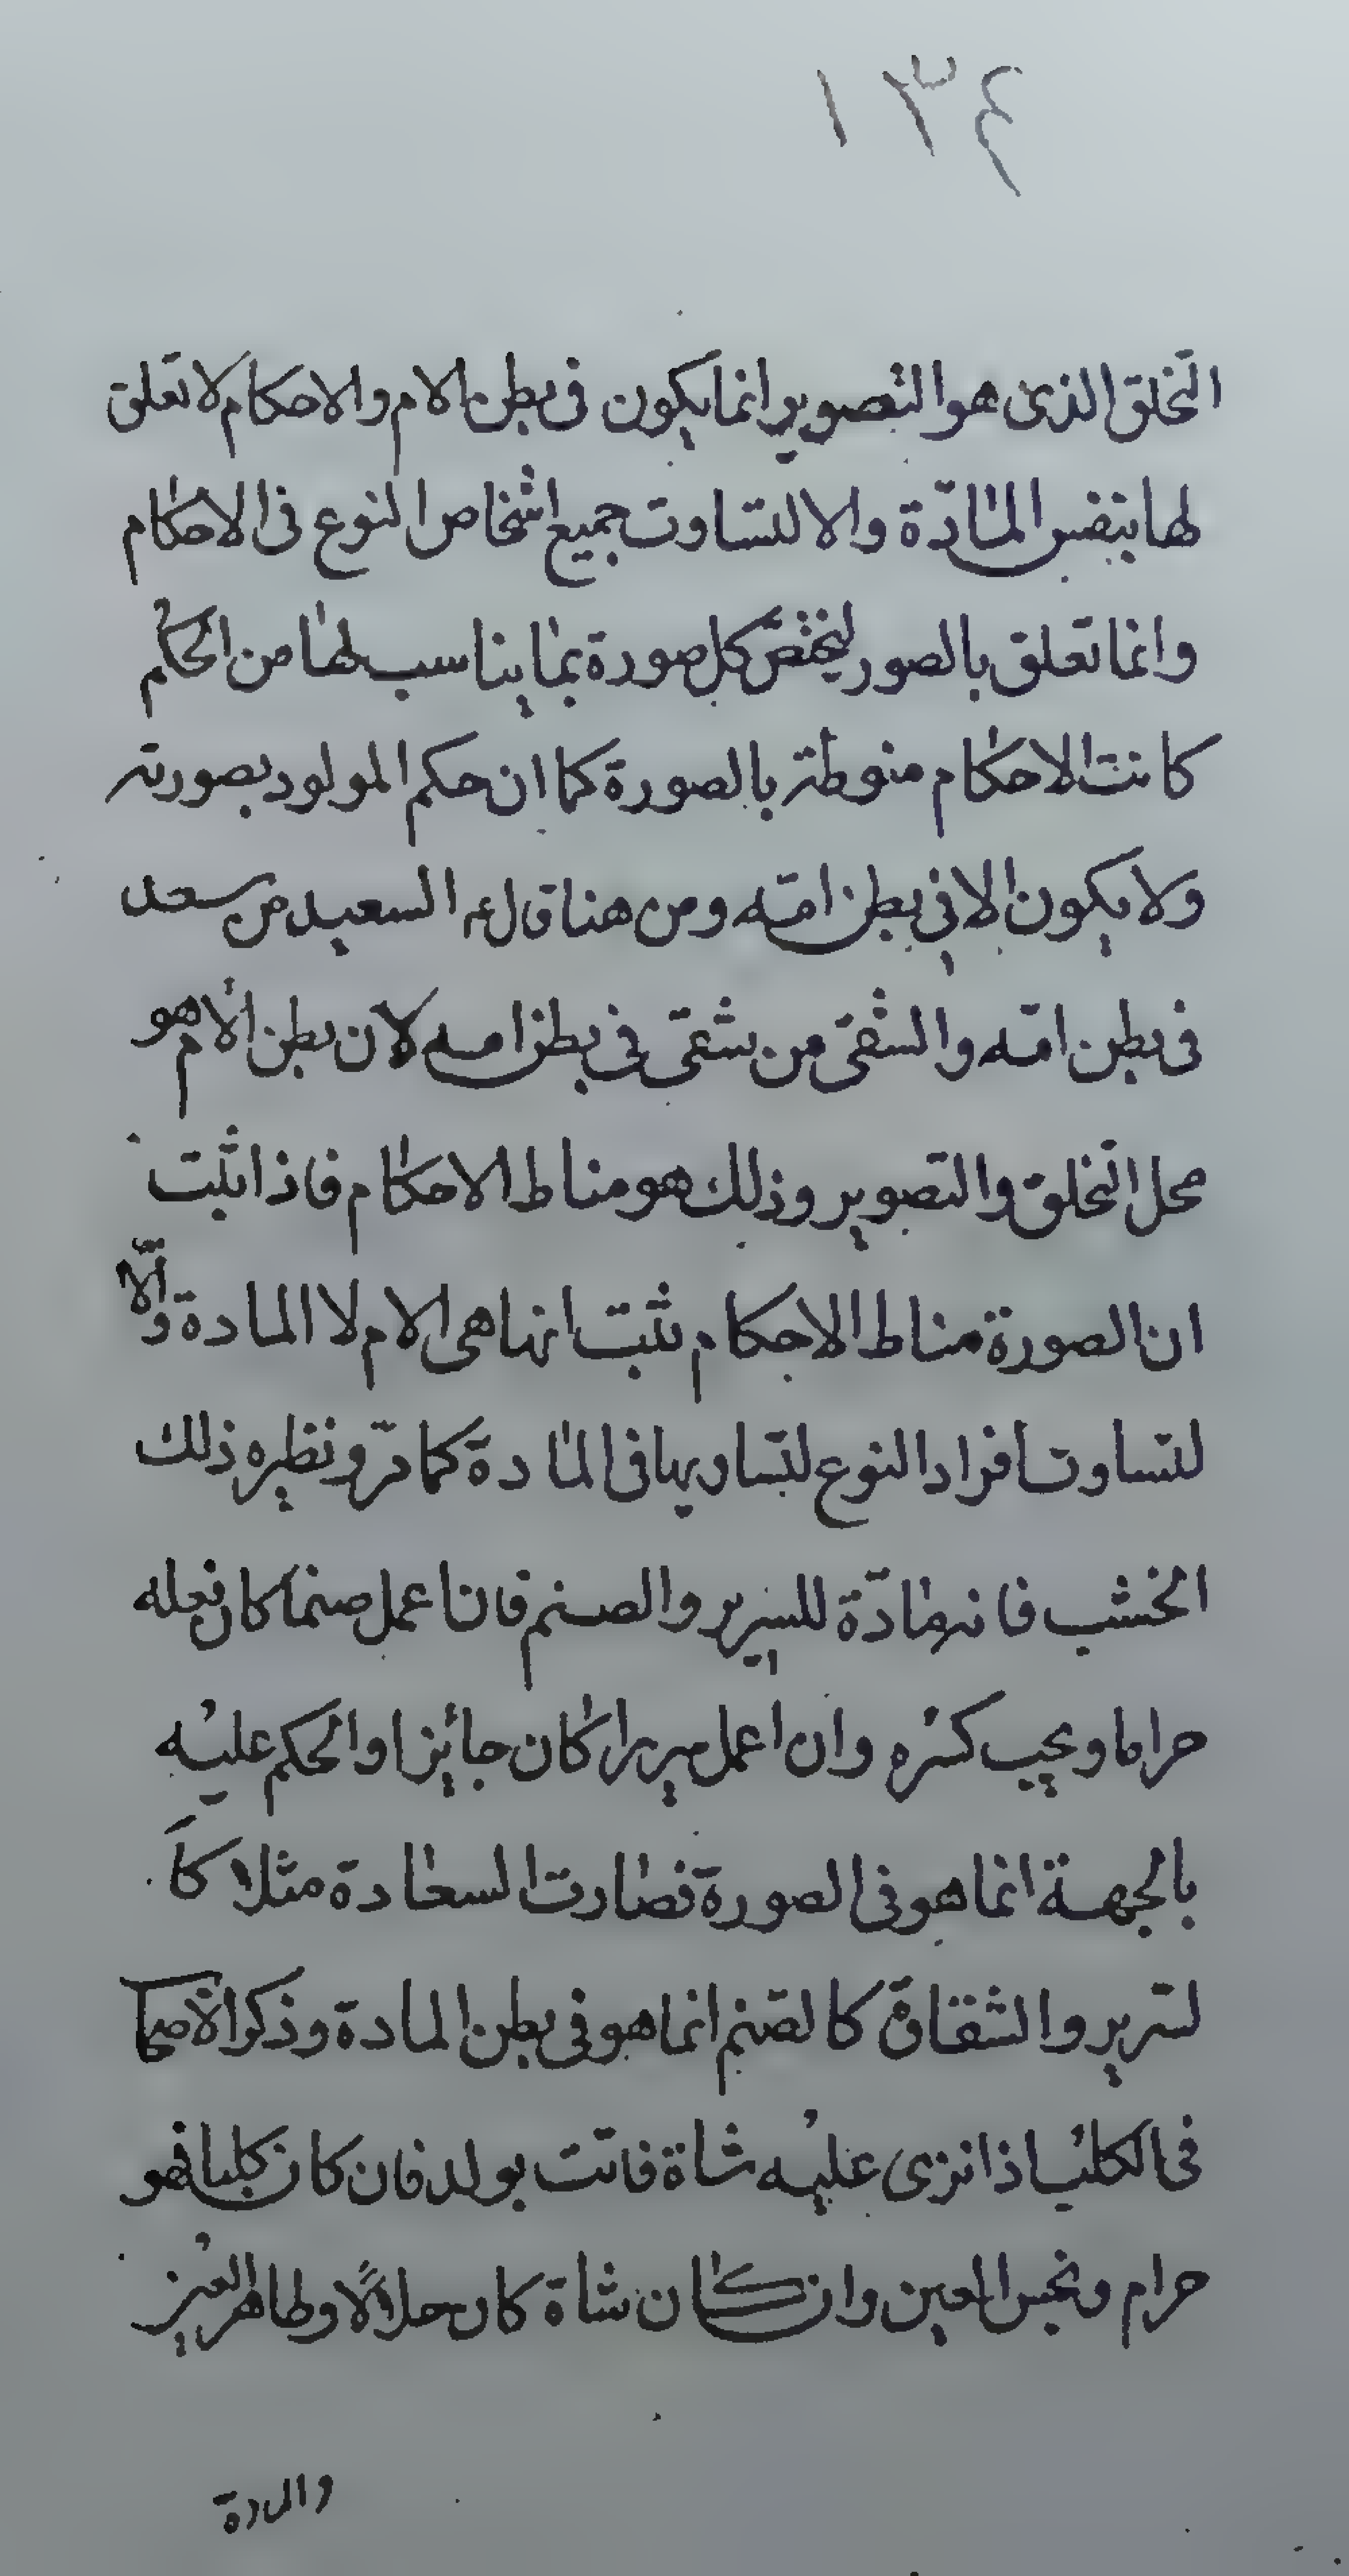 ١٣٤
التخلق الذى هو التصوير انما يكون فى بطن الام والاحكام لا تعلق
لها بنفس المادّة والا لتساوت جميع اشخاص النوع فى الاحكام
وانما تعلق بالصور ليختصّ كل صورة بما يناسب لها من الحكم
كانت الاحكام منوطة بالصورة كما ان حكم المولود بصورته
ولا يكون الا فى بطن امّه ومن هنا قال ع السعيد من سعد
فى بطن امّه والشقى من شقى فى بطن امه لان بطن الام هو
محل التخلق والتصوير وذلك هو مناط الاحكام فاذا ثبت
ان الصورة مناط الاحكام ثبت انها هى الام لا المادة والّا
لتساوت أفراد النوع لتساويها فى المادة كما مرّ ونظيره ذلك
الخشب فانه مادّة للسرير والصنم فان اعمل صنما كان فعله
حراما ويجب كسره وان اعمل سريرا كان جائزا والحكم عليه
بالجهة انما هو فى الصورة فصارت السعادة مثلا كا
لسرير والشقاوة كالصنم انما هو فى بطن المادة وذكر الاصحا
فى الكلب اذا نزى عليه شاة فاتت بولد فان كان كلبا فهو
حرام ونجس العين وان كان شاة كان حلالًا وطاهر العين
والمادة